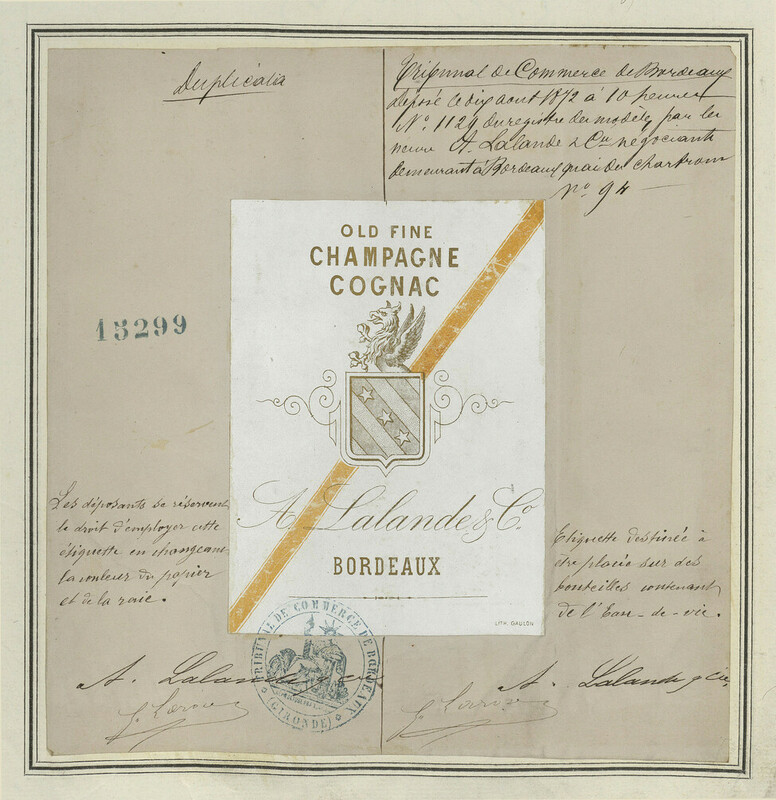 Duplicata
Tribunal de Commerce de Bordeaux
Déposé le dix aout 1872 à 10 heures
No. 1129 du registre des modèles, par les
A. Lalande & Cie négociants
demeurant à Bordeaux quai des Chartrons
no 94
OLD FINE
CHAMPAGNE
COGNAC
15299
Les déposants se réservent
le droit d'employer cette
étiquette en changeant
la couleur du papier
et de la raie.
A. Lalande & Co
BORDEAUX
Etiquette destinée à
être placée sur des
bouteilles contenant
de l'Eau-de-vie.
LITH. GAULON
TRIBUNAL DE COMMERCE DE BORDEAUX
(GIRONDE)
A. Lalande & Cie
A. Lalande & Cie